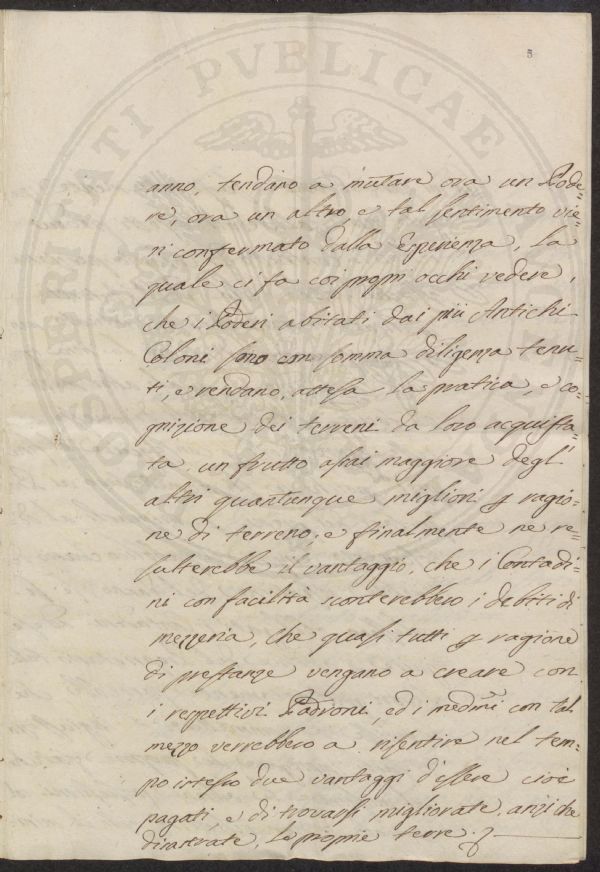 5
anno, tendano a mutare ora un Pode=
re, ora un altro e tal sentimento vie=
ni confermato dalla Esperienza, la
quale ci fa coi propri occhi vedere,
che i Poderi abitati dai più Antichi
Coloni sono con somma diligenza tenu=
ti, e rendano, attesa la pratica, e co=
gnizione dei terreni da loro acquista=
ta un frutto assai maggiore degl'
altri quantunque migliori p ragio=
ne di terreno; e finalmente ne re=
sulterebbe il vantaggio, che i Contadi=
ni con facilità sconterebbero i debiti di
mezzeria, che quasi tutti p ragione
di prestanze vengano a creare con
i respettivi Padroni, ed i medmi con tal
mezzo verrebbero a risentire nel tem=
po istesso due vantaggi d'essere cioè
pagati, e di trovarsi migliorate, anzi che
disastrate, le proprie terre.
PROSPERITATI PVBLICAE